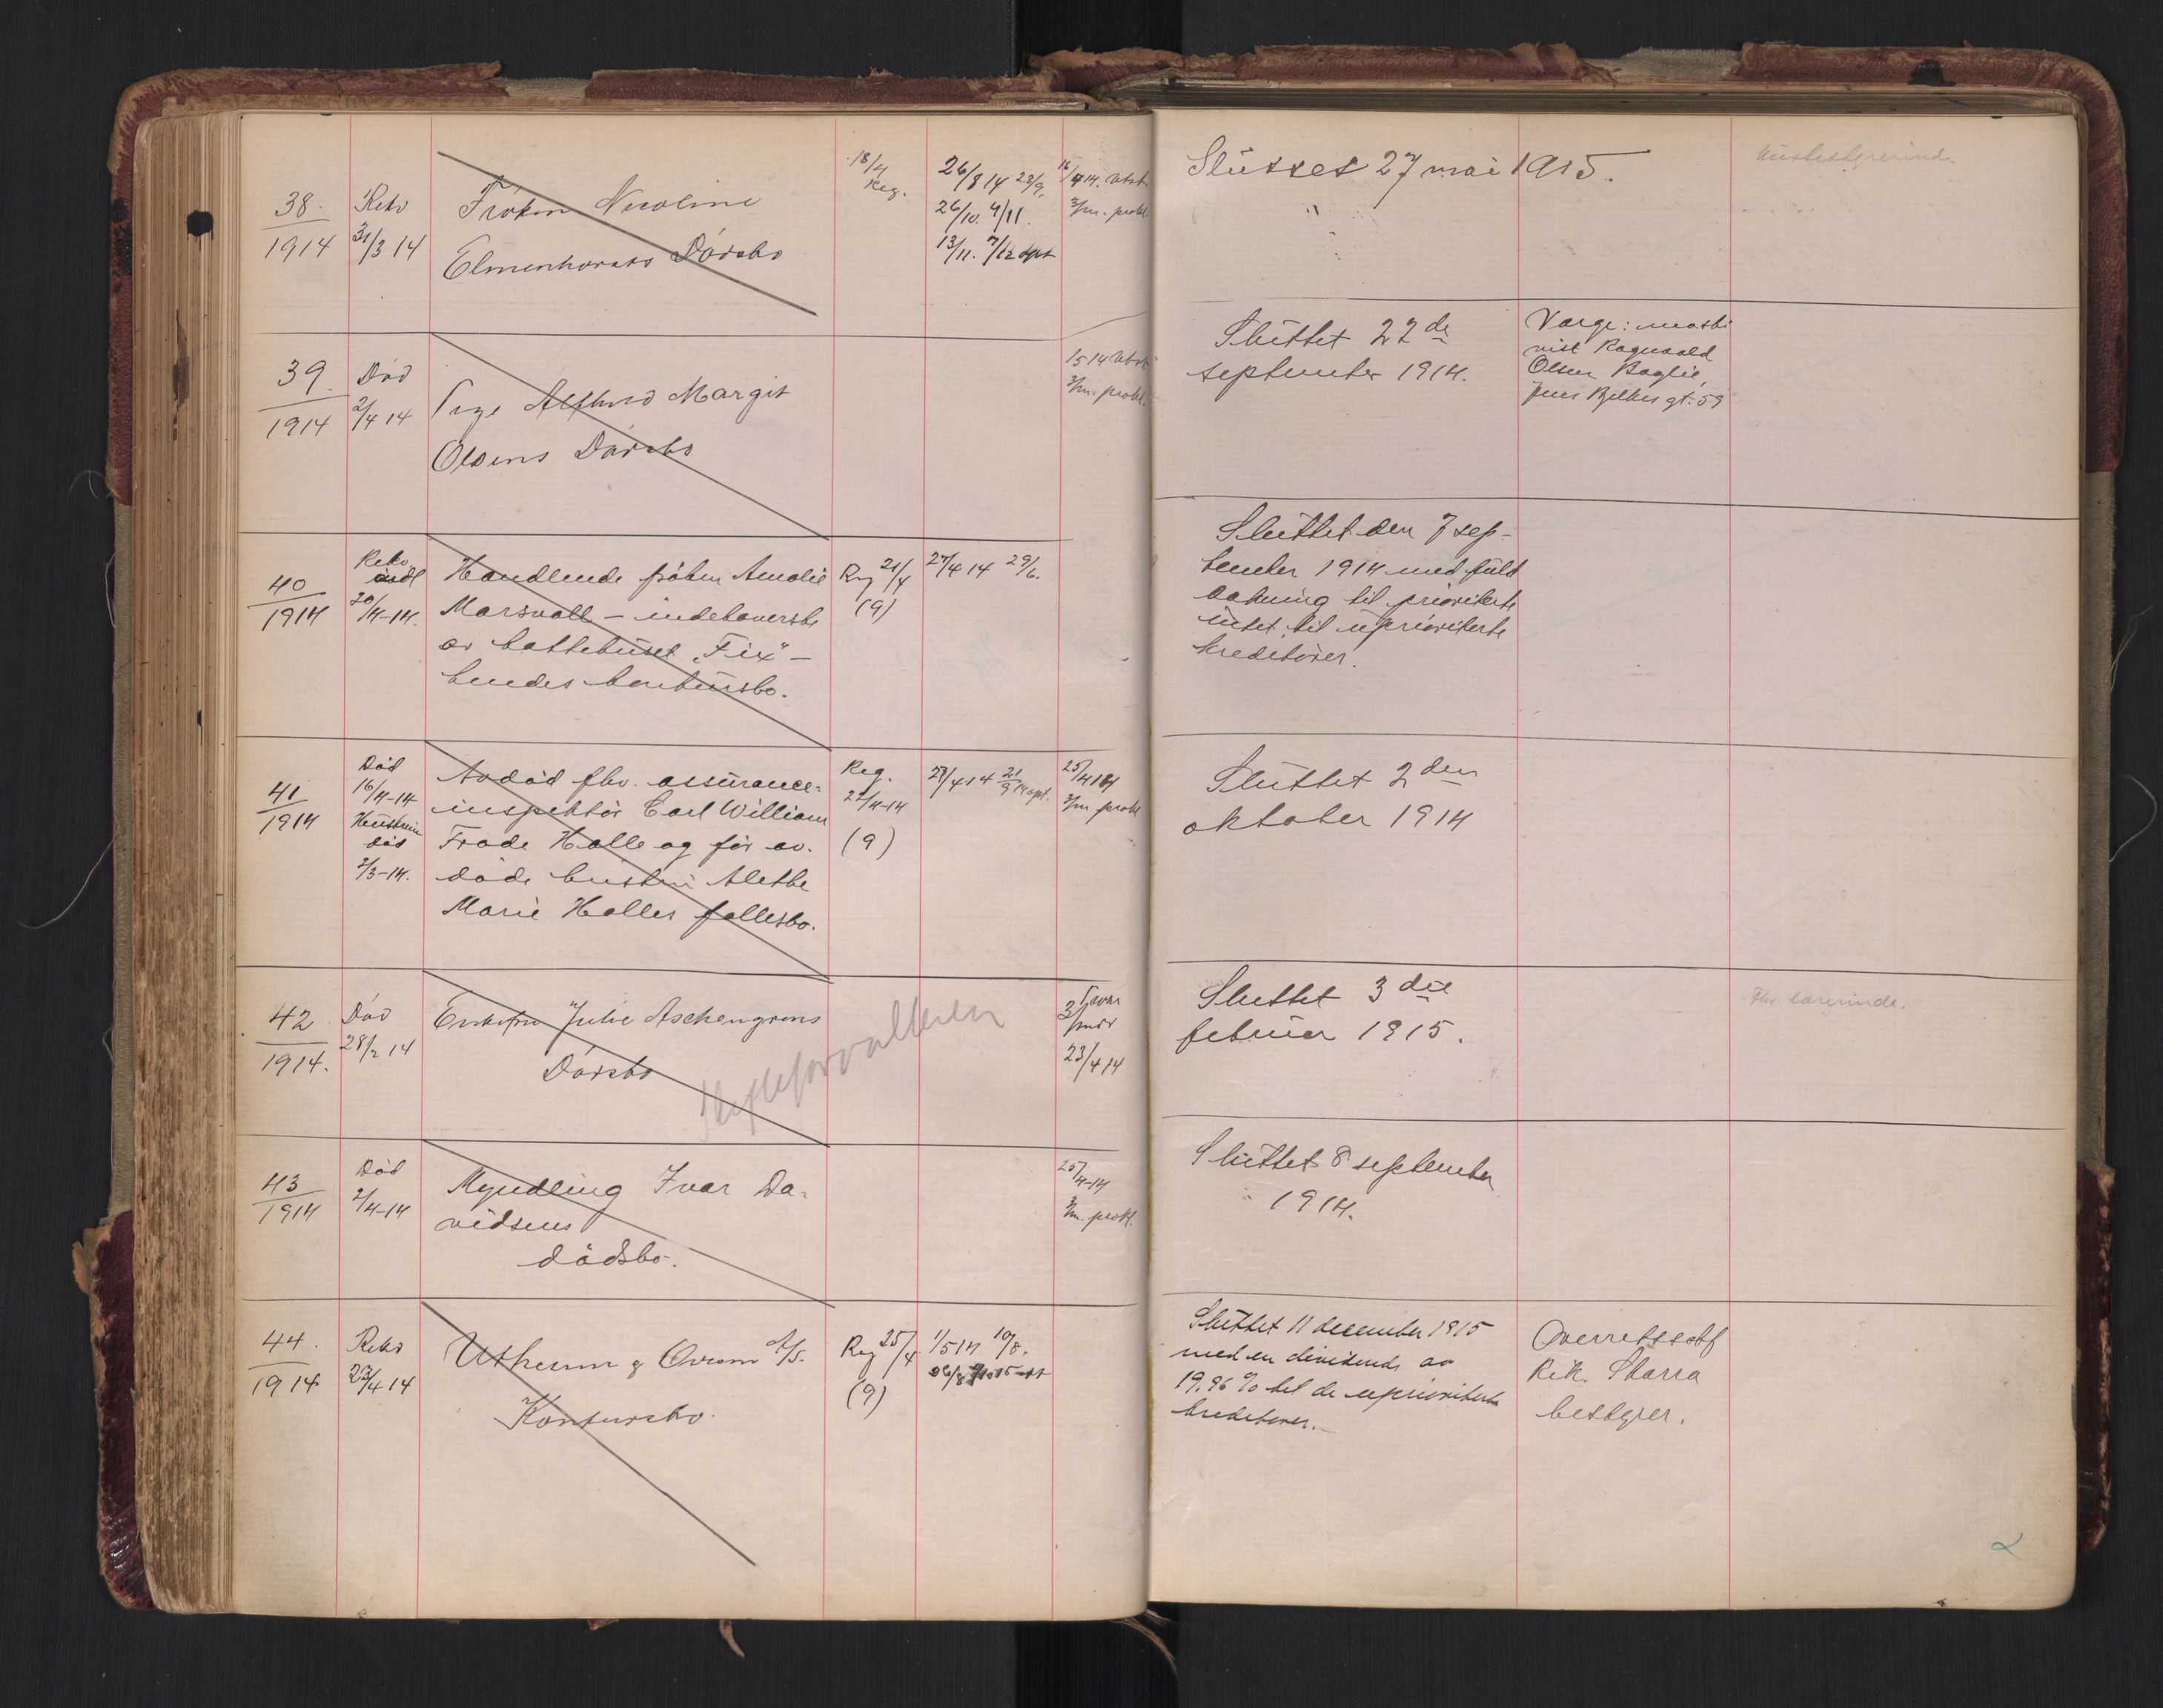 38
1914
Rekv
31/3 14
Frøken Nicoline
Elmenhorsts Dødsbo
18/4
Reg.
26/8 14 23/9.
26/10. 4/11.
13/11. 7/12 opt
16/4 14. Utst.
3/m. prokl.
Sluttet 27 mai 1915.
Husbestyrerinde
39
1914
Død
2/4 14
Pige Alfhild Margit
Olsens Dødsbo
15 14 Utst
3/m. prokl.
Sluttet 22de
september 1914.
Værge: maski
nist Ragnvald
Olsen Baglie,
Jens Bjelkes gt. 59
40
1914
Rekv.
indl
20/4-14.
Handlende frøken Amalie
Marsvall – indehaverske
av hattehuset "Fix" –
hendes konkursbo.
Reg 21/4
(9)
27/4 14 29/6.
Sluttet den 7 sep-
tember 1914 med fuld
dækning til prioriterte
intet til uprioriterte
kreditorer.
41
1914
Død
16/4-14
Hustruen
død
2/3-14.
Avdød fhv. assurance-
inspektør Carl William
Frode Halle og før av-
døde hustru Alethe
Marie Halles fællesbo.
Reg.
22/4-14
(9)
27/4 14 21/9 14 opt.
25/4 14
3/m prokl
Sluttet 2den
oktober 1914
42
1914.
Død
28/2 14
Enkefru Julie Aschengreens
Dødsbo
Skifteforvalteren
23/4 14
Sluttet 3die
februar 1915.
Fhv. lærerinde.
43
1914
Død
2/4-14
Myndling Ivar Da-
vidsens
dødsbo.
25/4-14
3/m. prokl.
Sluttet 8 september
1914.
44.
1914
Rekv
23/4 14
Utheim & Ovrum A/S.
Konkursbo.
Reg 25/4
(9)
1/5 14 10/8.
Sluttet 11 december 1915
med en dividende av
19,96 % til de uprioriterte
kreditorer.
Overretssakf
Rik. Skarra
bestyrer.